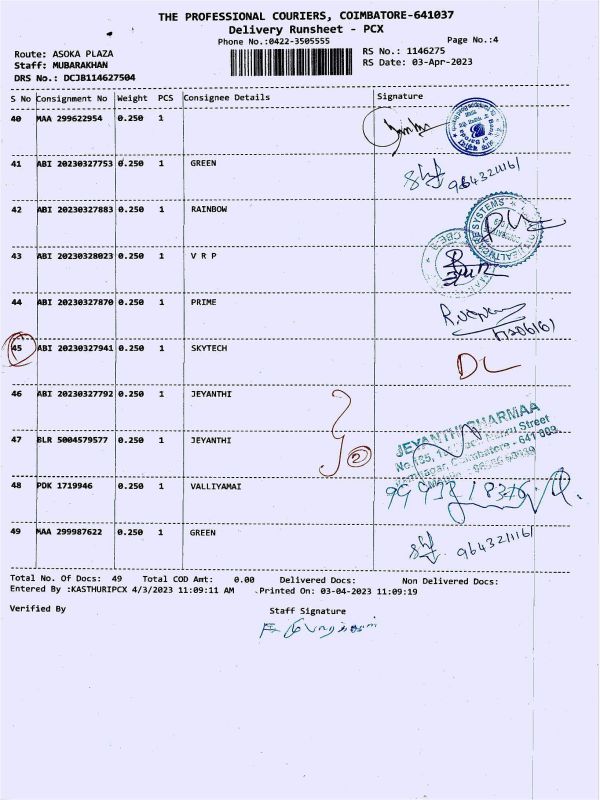 THE PROFESSIONAL COURIERS, COIMBATORE-641037
Delivery Runsheet - PCX
Phone No.:0422-3505555 Page No.:4
Route: ASOKA PLAZA RS No.: 1146275
Staff: MUBARAKHAN RS Date: 03-Apr-2023
DRS No.: DCJB114627504
S No Consignment No Weight PCS Consignee Details Signature
40 MAA 299622954 0.250 1
41 ABI 20230327753 0.250 1 GREEN
9643211161
42 ABI 20230327883 0.250 1 RAINBOW
43 ABI 20230328023 0.250 1 V R P
44 ABI 20230327870 0.250 1 PRIME
45 ABI 20230327941 0.250 1 SKYTECH DL
46 ABI 20230327792 0.250 1 JEYANTHI
JEYANTHI PHARMAA
47 BLR 5004579577 0.250 1 JEYANTHI 2
Coimbatore - 641 009.
48 PDK 1719946 0.250 1 VALLIYAMAI
49 MAA 299987622 0.250 1 GREEN
9643211161
Total No. Of Docs: 49 Total COD Amt: 0.00 Delivered Docs: Non Delivered Docs:
Entered By :KASTHURIPCX 4/3/2023 11:09:11 AM .Printed On: 03-04-2023 11:09:19
Verified By Staff Signature